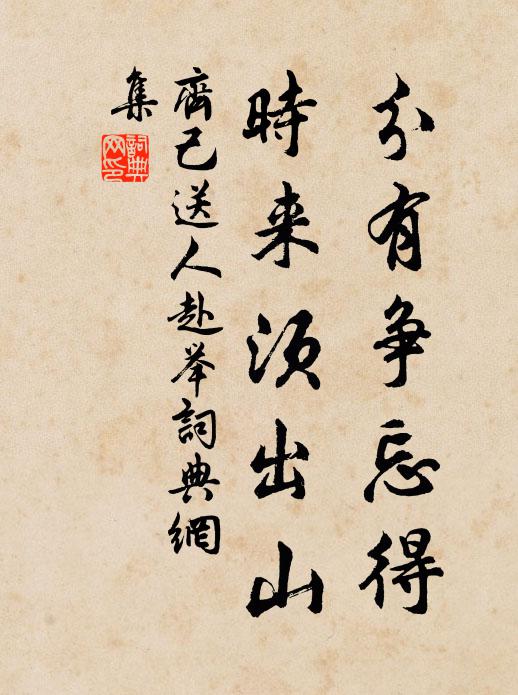 分有争忘得
時来须出山
齊己送人赴举詞典網
集
詞典
网印